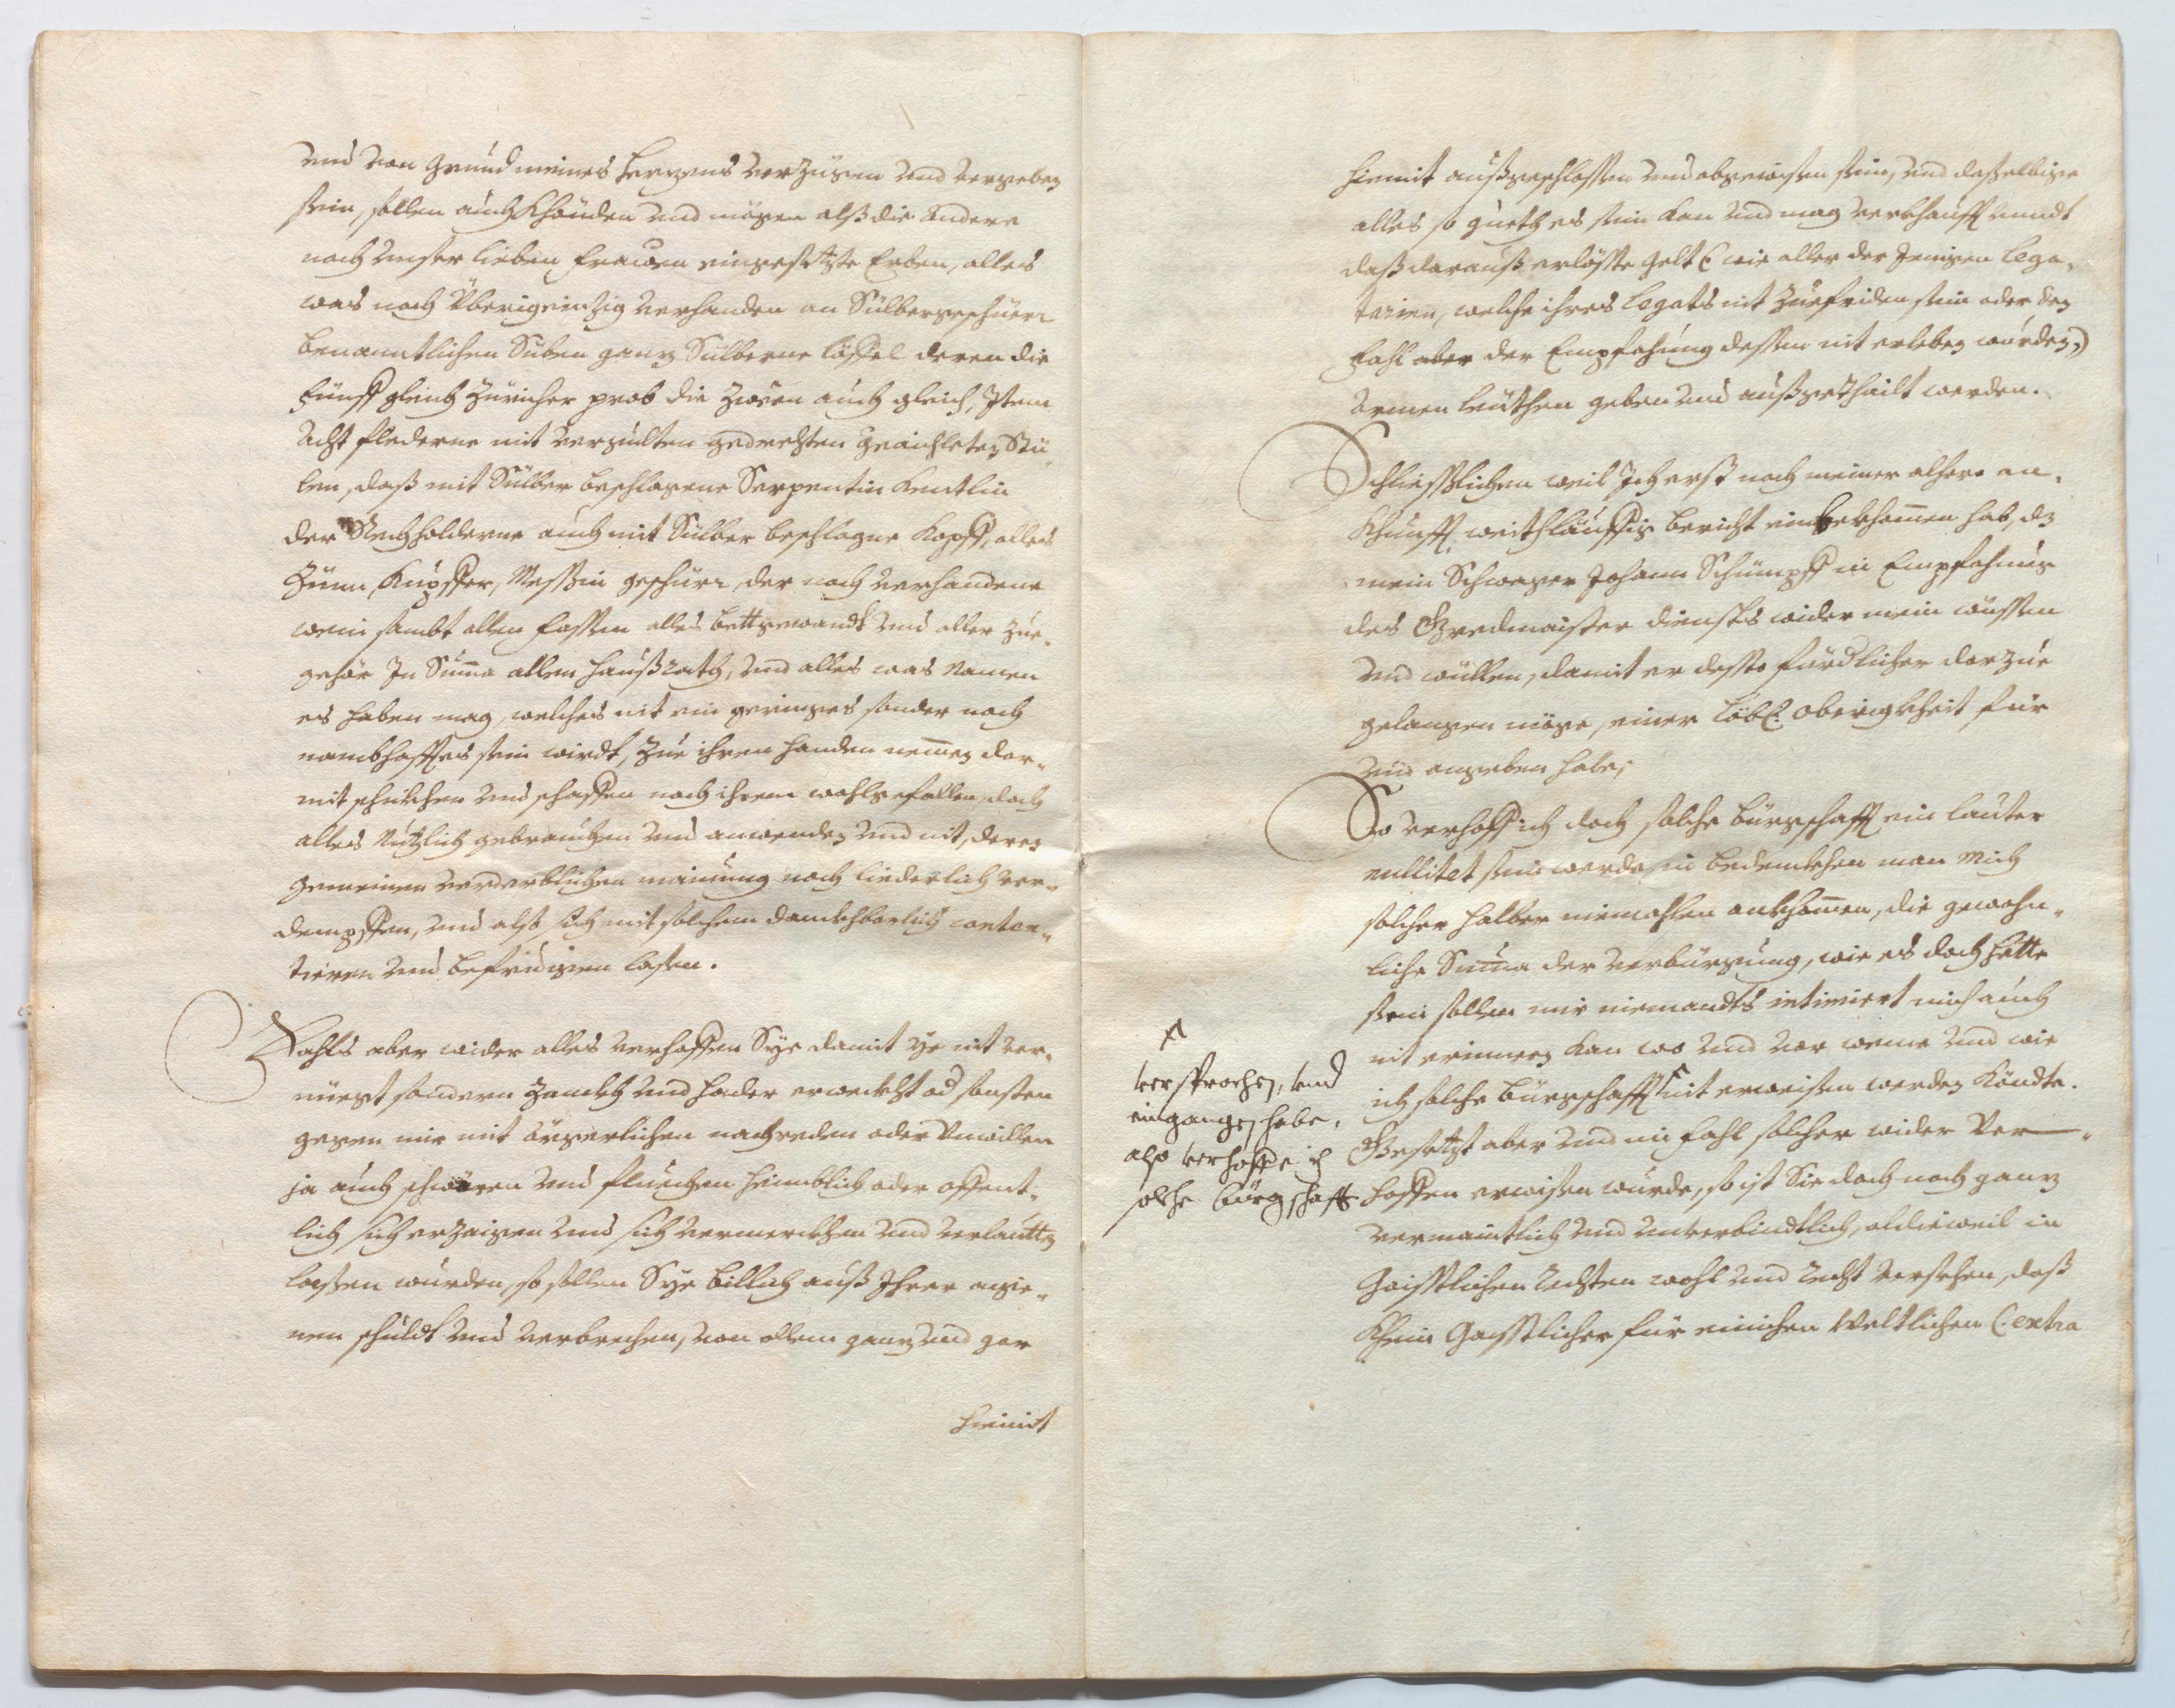 und von Grund meines hertzens verzügen und vergeben
sein, sollen auch khönden und mögen alß die andere
nach unser lieben frauwen eingesetzte Erben, alles
was noch Überigeintzig verhanden an Sülbergeschürr
benanntlichen Siben gantz Sülberne löffel deren die
fünff gleich Züricher prob die zwoen auch gleich, Item
Acht fladerne mit vergulten gedrehten Stü
len, daß mit Sülber beschlagene Serpentin kentlin
der Rechholderne auch mit Sülber beschlagne Kopff, alles
Zünn, Kupffer, Meßin geschürr, der noch verhandene
wein sambt allen fassen alles bettgewandt und aller zue-
gehör In Suma allem haußrath, und alles was Namen
es haben mag, welches nit ein geringes sonder noch
nambhafftes sein wirdt, Zue ihren handen nemen dar-
mit schickhen und schaffen nach ihrem wohlgefallen, doch
alles Nutzlich gebrauchen und anwenden und nit, deren
gemeinen verderblichen mainung nach liederlich ver-
dempffen, und alß sich mit solchem danckhbarlich conten-
tieren und befridigen lassen.
Fahls aber wider alles verhoffen Sye damit ye nit ver-
nüegt sondern Zanckh und hader erweckht od sonsten
gegen mir mit ärgerlichen nachreden oder Unwillen
ja auch schwören und fluechen heimblich oder offent-
lich sich erzaigen und sich vermerckhen und verlautten
lassen wurden, so sollen Sye billich auß Ihrer aigne-
nen schuldt und verbrechen, von allem gantz und gar
hiemit
hiemit außgeschlossen und abgewisen sein, und dasselbige
alles so gueth es sein kan und mag verkhaufft unndt
daß darauß erlößte gelt (wie aller der Jenigen lega-
tarien, welche ihres legats nit zuefriden sein oder den
fahl aber der Empfahung dessen nit erleben wurden)
armen leüthen geben und außgethailt werden.
Schließlichen weil Ich erst nach meiner alhero an-
khunfft weithläuffig bericht einbekhomen hab, dz
mein Schwager Johann Schümpff in Empfahung
des Gredmaister diensts wider mein wüssen
und wüllen, damit er desto fürdlicher darzue
gelangen möge, einer löbl: Oberigkheit für
und angeben habe,
So verhoff ich doch solche bürgschafft ein lauter
nullitet sein werde in bedenckhen man mich
solcher halber niemahlen ankhomen, die gewohn-
liche Suma der verbürgung, wie es doch hette
sein sollen mir niemandts intimiert mich auch
nit erinnern kan wo und vor weme und wie
ich solche bürgschafft nit erweisen werden köndte.
Gesetzt aber und im fahl solcher wider Ver-
hoffen erwisen wurde, so ist Sie doch noch gantz
vermaintlich und unverbindtlich, aldieweil in
Gaisstlichen rechten wohl und recht versehen, daß
khein Gaistlicher für einichen Weltlichen (extra
versprochen, und
eingangen habe,
also verhoffe ich
solche bürgschafft